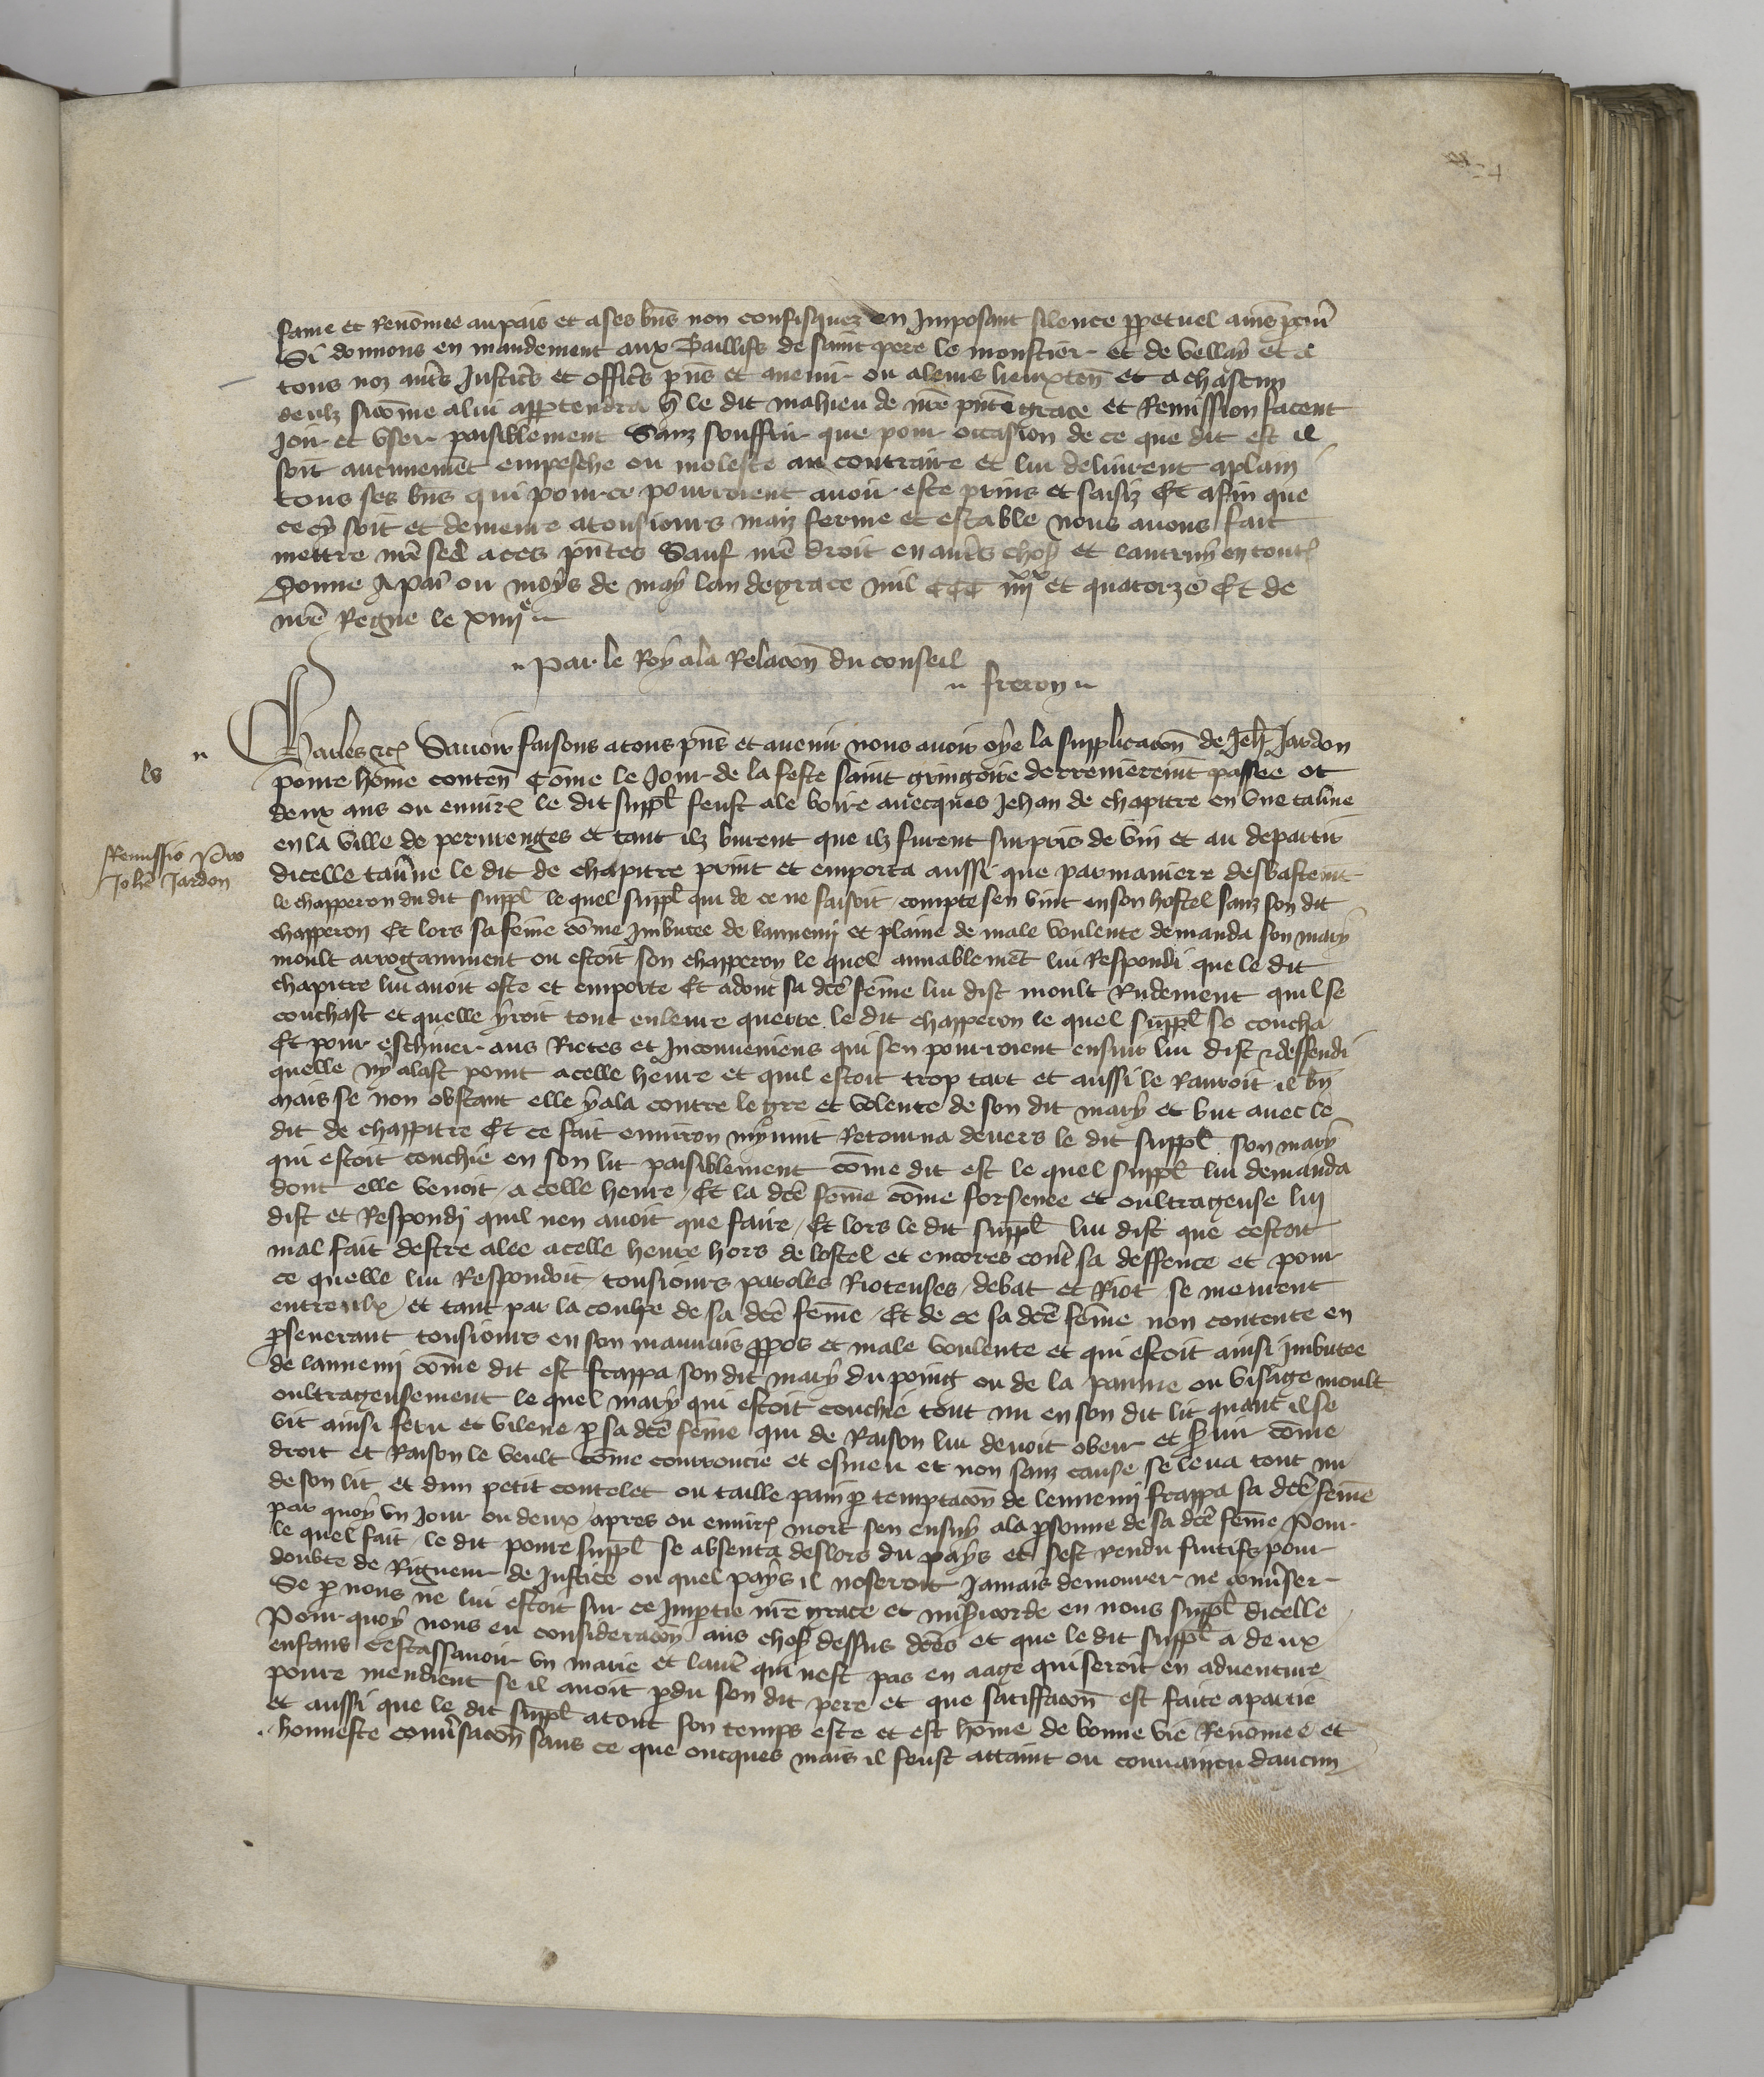 24
fame et Renōmee au pais et a ses bn̄s non confisquez en Imposant silence ꝑpetuel
Si donnons en mandement aux Baillifs de saint pere le monstier et de vellay et a
tous noz autr̄s Justicr̄s et officr̄s pn̄s et auenir ou a leurs lieuxten̄ et a chascun
deulz sicōme a lui appartendra q̄ le dit mahieu de nr̄e pn̄te grace et Remission facent
Joir et vser paisiblement Sanz souffrir que pour occasion de ce que dit est il
soit aucunemēt empesche ou moleste au contraire et lui deliurent a plain
tous ses bn̄s qui pour ce pourroient auoir este prins et saisiz Et afin que
ce cy soit et demeure a tousiours maiz ferme et estable nous auons fait
mettre nr̄e seel a ces pn̄tes Sauf nr̄e droit en autr̄s chos̄ et lautruy en toutes
Donne A par̄ ou moys de may lan de grace mil CCC iiij xx et quatorze Et de
nr̄e Regne le xiiij e
Par le Roy a la Relacōn du conseil
freron
Charles etc̄ Sauoir faisons a tous pn̄s et auenir nous auoir oye la supplicacōn de Jeh̄ Jardon
poure hōme conten̄ Cōme le Jour de la feste saint gringoire derrenierem̄t passee ot
deux ans ou enuirō le dit suppl̄ feust ale boire auecques Jehan de chapitre en vne tauñe
en la ville de perurenges et tant ilz burent que ilz furent surpris de vin et au departir
Remissio Pro
Johē Jardon
dicelle tauñe le dit de chapitre print et emporta aussi que par maniere desbastem̄t
le chapperon du dit suppl̄ le quel suppl̄ qui de ce ne faisoit compte sen vint en son hostel sanz son dit
chapperon Et lors sa fēme cōme Imbutee de lannemj et plaine de male voulente demanda son mary
moult arrogamment ou estoit son chapperon le quel amiablemēt lui Respondi que le dit
chapitre lui auoit oste et emporte Et adont sa dc̄e fēme lui dist moult Rudement quil se
couchast et quelle yroit tout en leure querre le dit chapperon le quel suppl̄ se coucha
Et pour eschiuer aus Riotes et Inconueniens qui sen pourroient ensuir lui dist et deffendi
quelle ny alast point a celle heure et quil estoit trop tart et aussi le Rauroit il bn̄
mais se non obstant elle y ala contre le gre et volente de son dit mary et but auec le
dit de chappitre Et ce fait enuiron mynuit Retourna deuers le dit suppl̄ son mary
qui estoit couchie en son lit paisiblement cōme dit est le quel suppl̄ lui demanda
dont elle venoit a celle heure Et la dc̄e fēme cōme forsenee et oultrageuse luj
dist et Respondj quil nen auoit que faire Et lors le dit suppl̄ lui dist que cestoit
mal fait destre alee a celle heure hors de lostel et encores contr̄ sa deffence et pour
ce quelle lui Respondoit tousiours paroles Rioteuses debat et Riot se meurent
entreulx et tant par la coulpe de sa dc̄e fēme Et de ce sa dc̄e fēme non contente en
ꝑseuerant tousiours en son mauuais ꝓpos et male voulente et qui estoit ainsi Imbutee
de lannemj cōme dit est frappa son dit mary du poing ou de la paume ou visage moult
oultrageusement le quel mary qui estoit couchie tout nu en son dit lit quant il se
vit ainsi feru et vilene ꝑ sa dc̄e fēme qui de Raison lui deuoit obeir et s̄uir cōme
droit et Raison le veult cōme courroucie et esmeu et non sanz cause se leua tout nu
de son lit et dun petit coutelet ou taille pain ꝑ temptacōn de lennemj frappa sa dc̄e fēme
par quoy vn Jour ou deux apres ou enuirō mort sen ensuy a la ꝑsonne de sa dc̄e fēme Pour
le quel fait le dit poure suppl̄ se absenta deslors du pays et sest rendu fuitifs pour
doubte de Rigueur de Justice ou quel pays il noseroit Jamais demourer ne conūser
Se ꝑ nous ne lui estoit sur ce Impartie nr̄e grace et mīsericorde en nous suppl̄ dicelle
Pour quoy nous en consideracōn aus chos̄ dessus dc̄es et que le dit suppl̄ a deux
enfans cestassauoir vn marie et lautr̄ qui nest pas en aage qui seroit en aduenture
poure mendient se il auoit ꝑdu son dit pere et que satiffacōn est faite a partie
et aussi que le dit suppl̄ a tout son temps este et est hōme de bonne vie Renōmee et
honneste conūsacōn sans ce que oncques mais il feust attaint ou conuaincu daucun